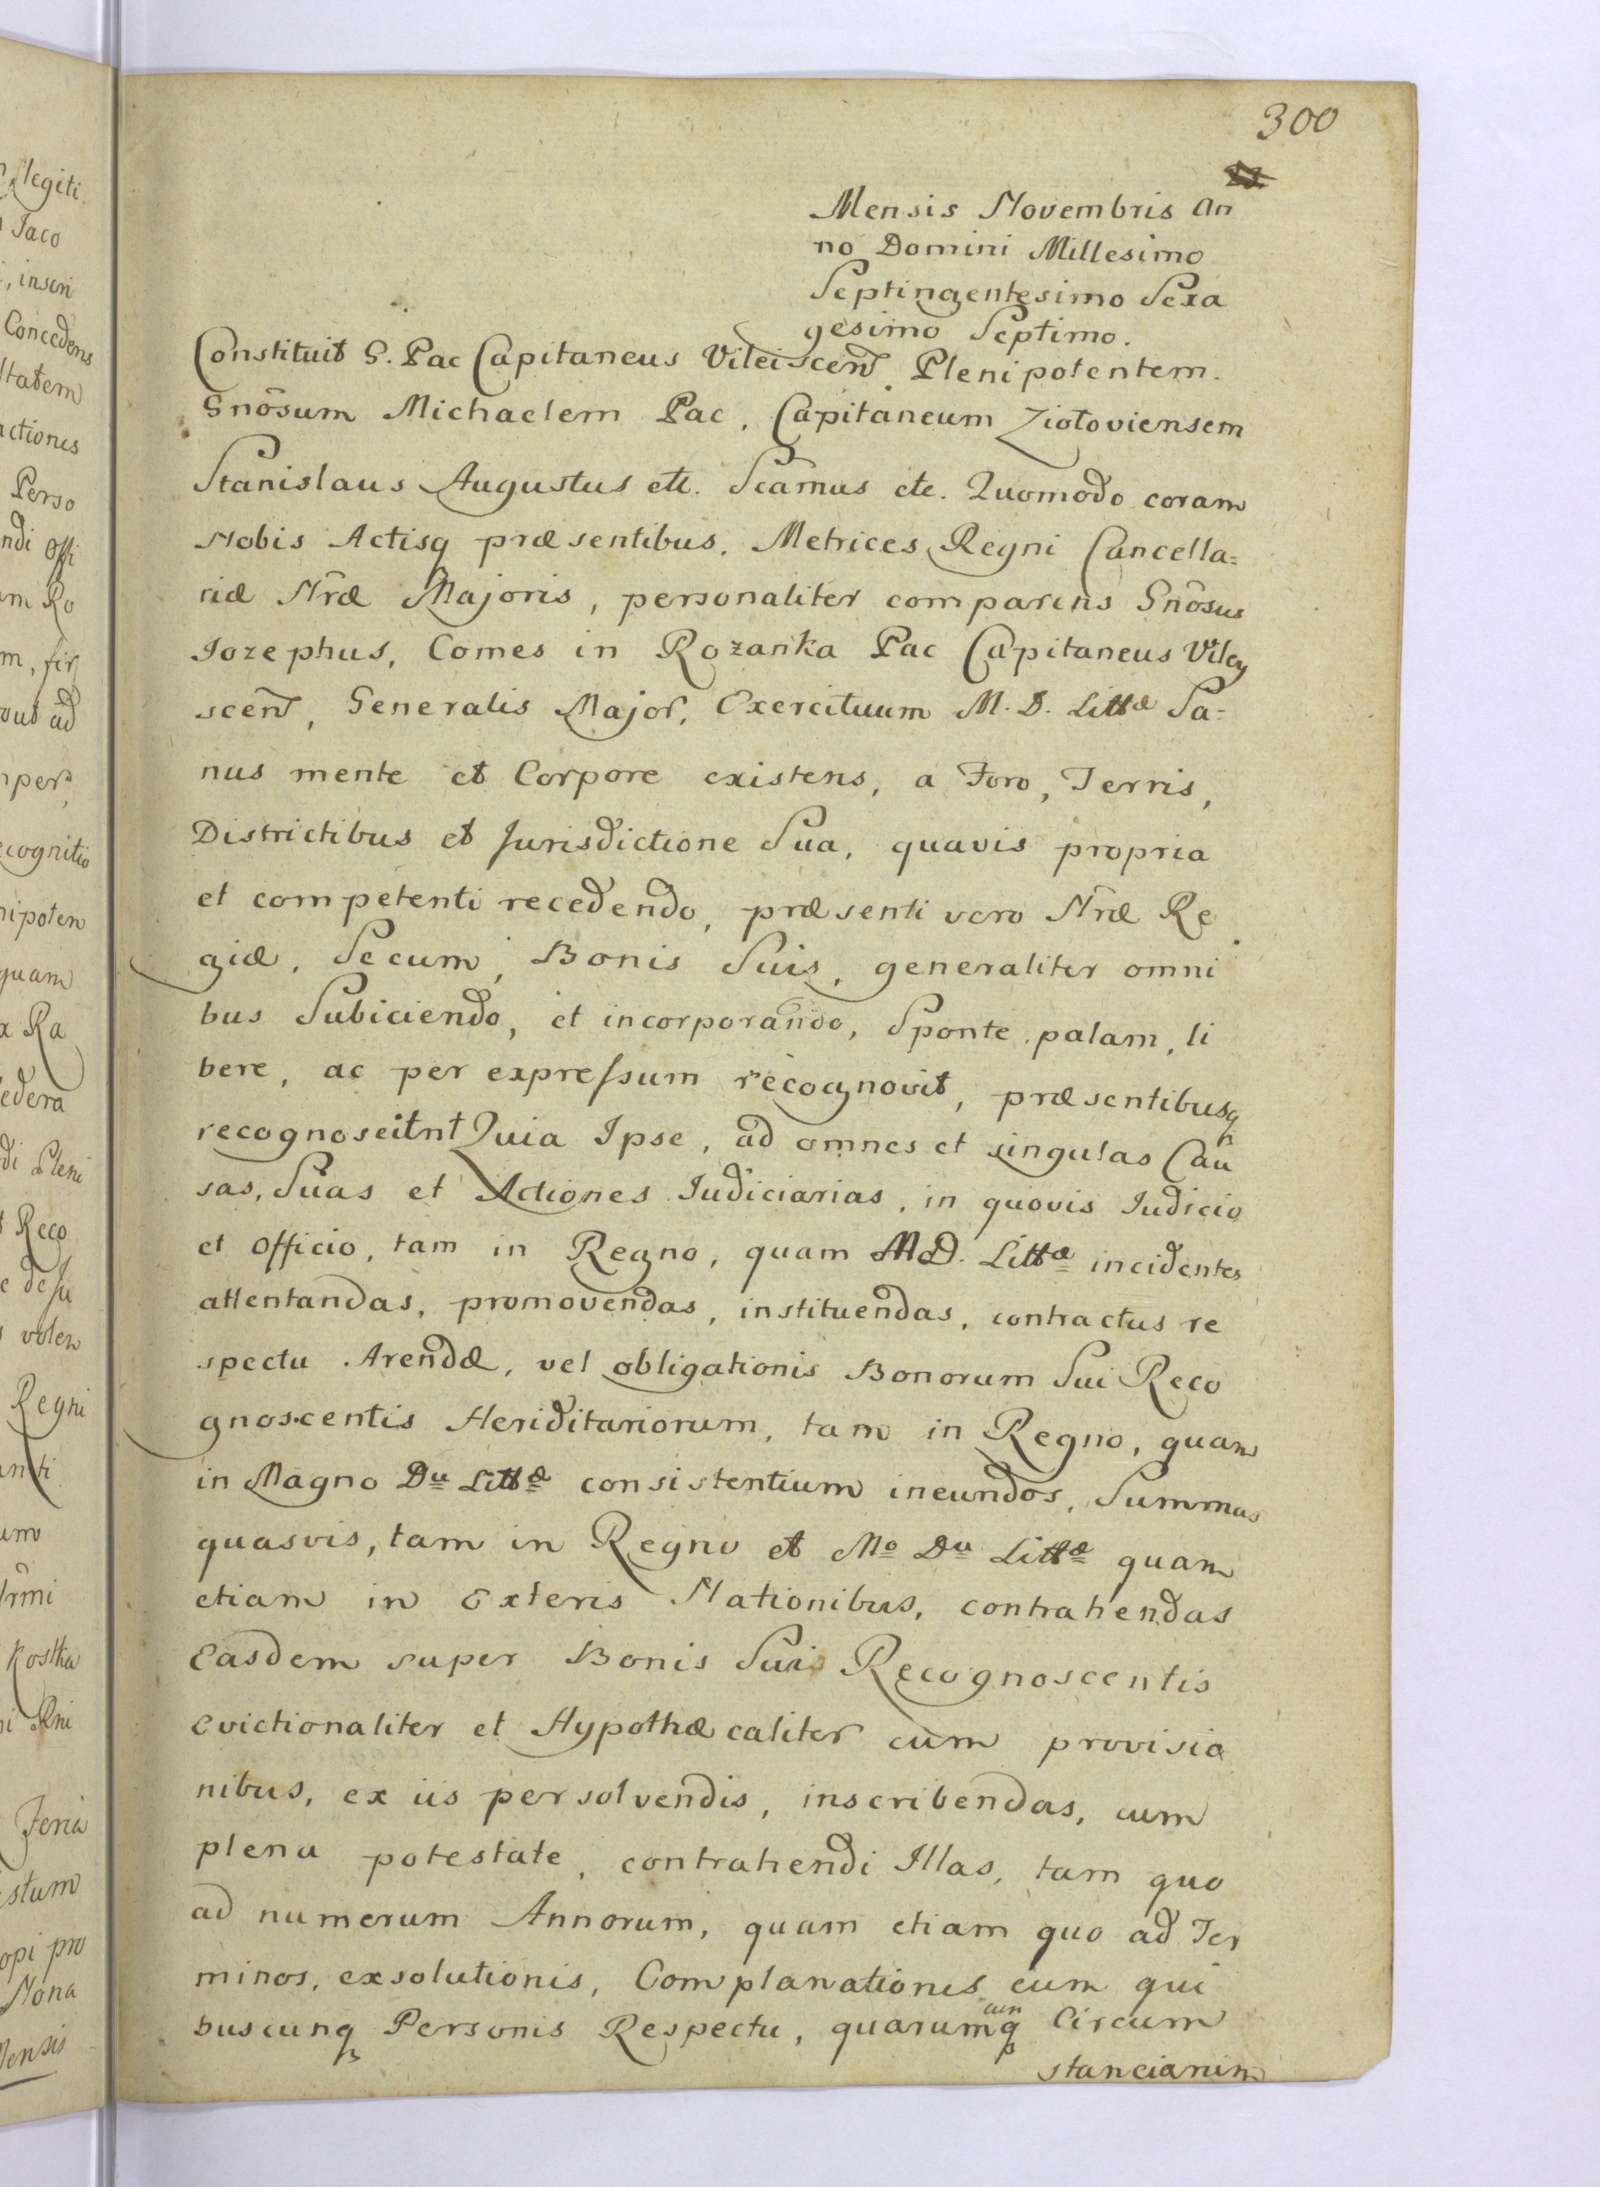 300
Mensis Novembris An
no Domini Millesimo
Septingentesimo Sexa
gesimo Septimo.
Constituit G. Pac Capitaneus Vileiscen̄ Plenipotentem.
Gnōsum Michaelem Pac, Capitaneum Ziołoviensem
Stanislaus Augustus etc. Scāmus etc. Quomodo coram
Nobis Actisq præsentibus, Metrices Regni Cancella=
riæ Nr̄æ Majoris, personaliter comparens Gnōsus
Jozephus, Comes in Rozanka Pac Capitaneus Viley
scen̄, Generalis Major, Exercituum M. D. Littæ Sa=
nus mente et Corpore existens, a Foro, Terris,
Districtibus et Jurisdictione Sua, quavis propria
et competenti recedendo, præsenti vero Nr̄æ Re
giæ, Secum, Bonis Suis, generaliter omni
bus Subiciendo, et incorporando, Sponte, palam, li
bere, ac per expressum recognovit, præsentibusq
recognoscit Quia Ipse, ad omnes et singulas Cau
sas, Suas et Actiones Judiciarias, in quovis Judicio
et Officio, tam in Regno, quam M.D. Littæ incidentes
attentandas, promovendas, instituendas, contractus re
spectu Arendæ, vel obligationis Bonorum Sui Reco
gnoscentis Heriditariorum, tam in Regno, quam
in Magno Du Littæ consistentium ineundos, Summas
quasvis, tam in Regno et Mo Du Littæ quam
etiam in Exteris Nationibus, contrahendas
Easdem super Bonis Suis Recognoscentis
evictionaliter et Hypothæcaliter cum provisio
nibus, ex iis persolvendis, inscribendas, cum
plena potestate, contrahendi Illas, tam quo
ad numerum Annorum, quam etiam quo ad Ter
minos, exsolutionis, Complanationes cum qui
buscunq Personis Respectu, quarumcunq Circum
stanciarum